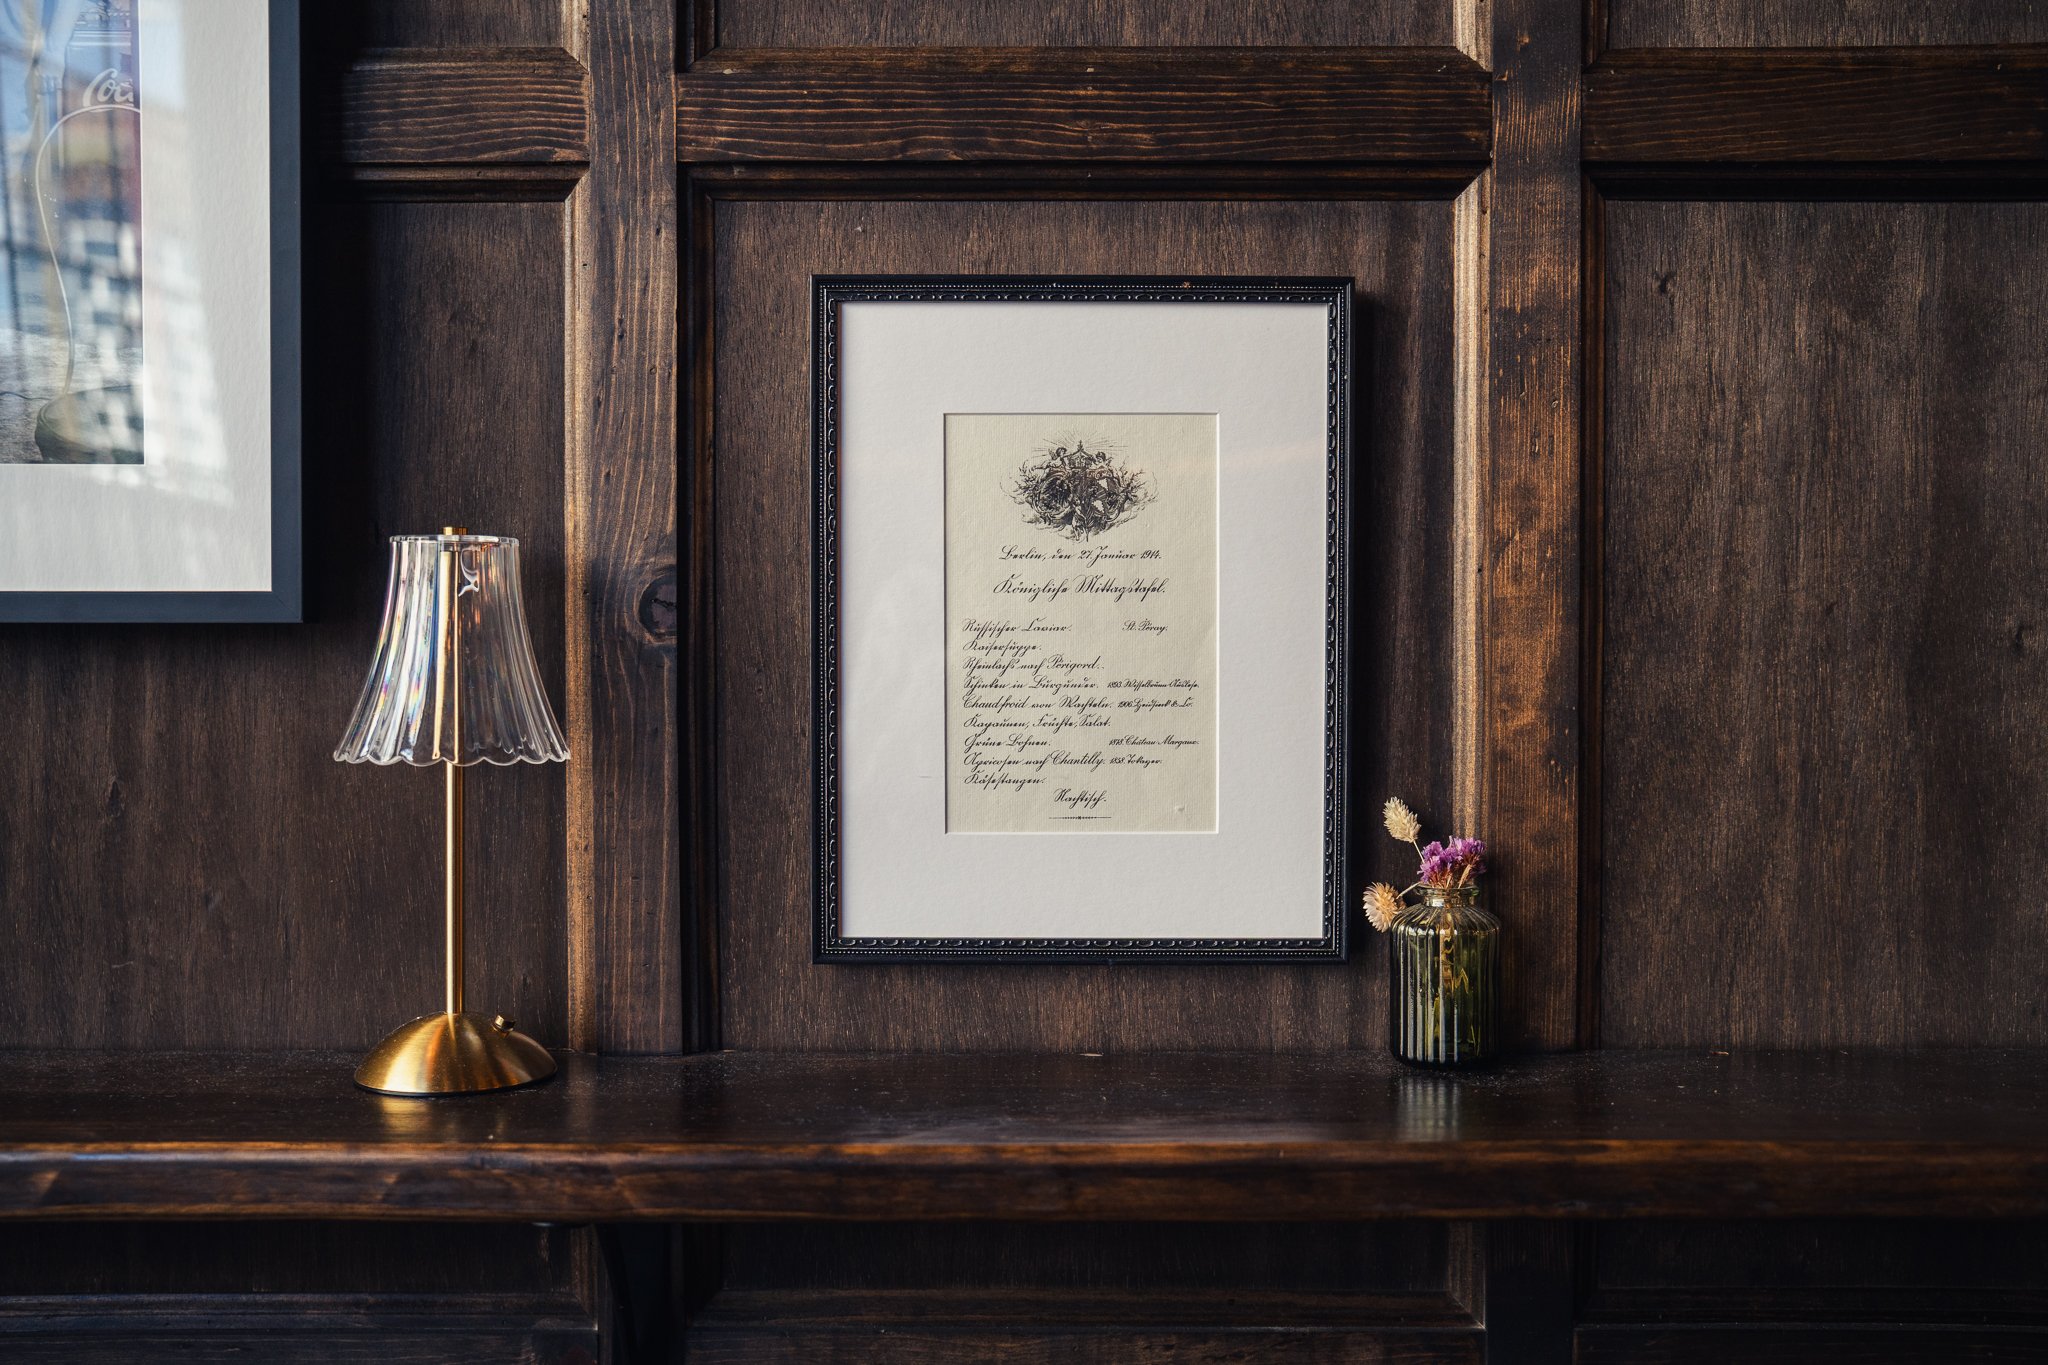 Berlin, den 27. Januar 1914.
Königliche Mittagstafel.
Russischer Caviar. St. Péray.
Kaisersuppe.
Rheinlachs nach Périgord.
Schinken in Burgunder. 1893. Auslese.
Chaudfroid von Wachteln. 1906. & Co.
Kapaunen, Früchte, Salat.
Grüne Bohnen. 1878. Château Margaux.
Apricosen nach Chantilly. 1858. Tokayer.
Käsestangen.
Nachtisch.